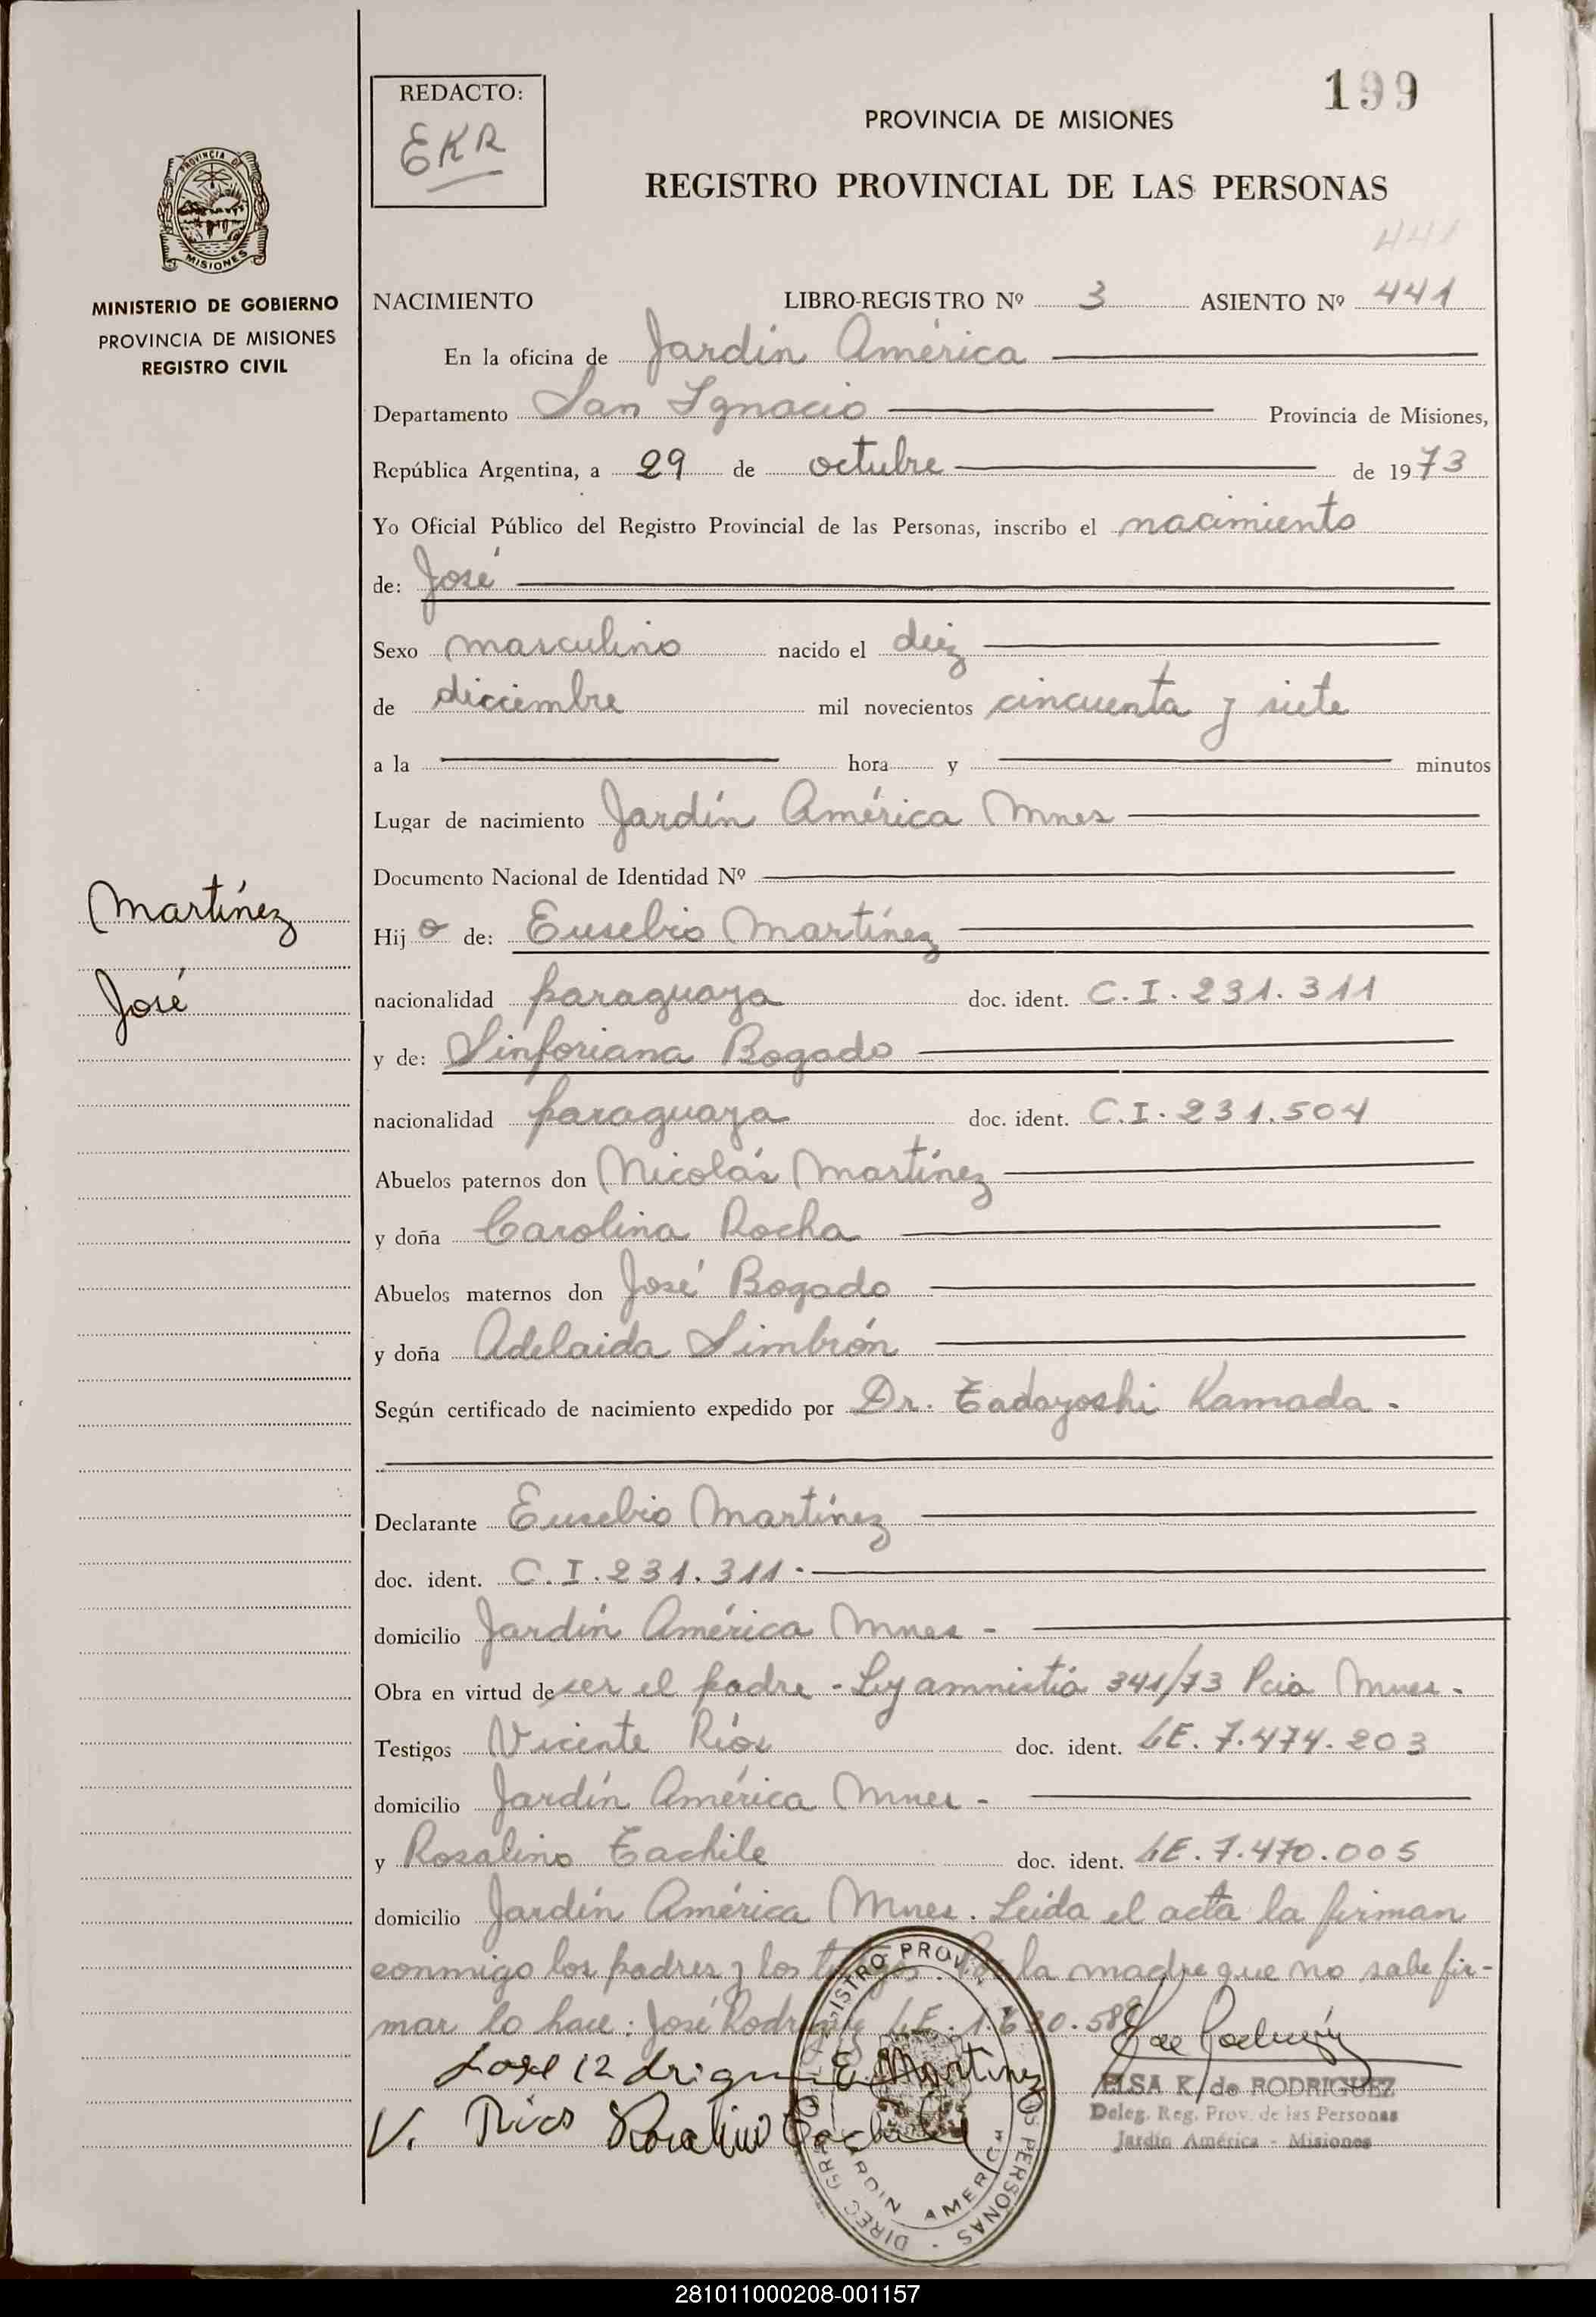 199
REDACTO:
EKR
PROVINCIA DE MISIONES
REGISTRO PROVINCIAL DE LAS PERSONAS
441
PROVINCIA DE
MISIONES
MINISTERIO DE GOBIERNO
PROVINCIA DE MISIONES
REGISTRO CIVIL
NACIMIENTO LIBRO-REGISTRO Nº 3 ASIENTO Nº 441
En la oficina de Jardín América
Departamento San Ignacio Provincia de Misiones,
República Argentina, a 29 de octubre de 1973
Yo Oficial Público del Registro Provincial de las Personas, inscribo el nacimiento
de: José
Sexo masculino nacido el diez
de diciembre mil novecientos cincuenta y siete
a la hora y minutos
Lugar de nacimiento Jardín América Mnes
Documento Nacional de Identidad Nº
Martínez
José
Hijo de: Eusebio Martínez
nacionalidad paraguaya doc. ident. C.I. 231.311
y de: Sinforiana Bogado
nacionalidad paraguaya doc. ident. C.I. 231.504
Abuelos paternos don Nicolás Martínez
y doña Carolina Rocha
Abuelos maternos don José Bogado
y doña Adelaida Simbrón
Según certificado de nacimiento expedido por Dr. Tadayoshi Kamada.
Declarante Eusebio Martínez
doc. ident. C.I. 231.311.
domicilio Jardín América Mnes -
Obra en virtud de ser el padre - Ley amnistía 341/73 Pcia Mnes.
Testigos Vicente Ríos doc. ident. LE. 7.474.203
domicilio Jardín América Mnes -
y Rosalino Tachile doc. ident. LE. 7.470.005
domicilio Jardín América Mnes. Leída el acta la firman
conmigo los padres y los la madre que no sabe fir-
mar lo hace: José Rodríguez LE.
E. Martinez
V. Rios Rosalino
ELSA K. de RODRIGUEZ
Deleg. Reg. Prov. de las Personas
Jardín América - Misiones
281011000208-001157